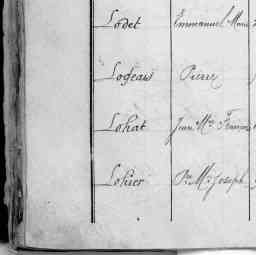 Lodet Emmanuel Marie
Logeais Pierre
Lohat Jean Mie François
Lohier Pre Mie Joseph